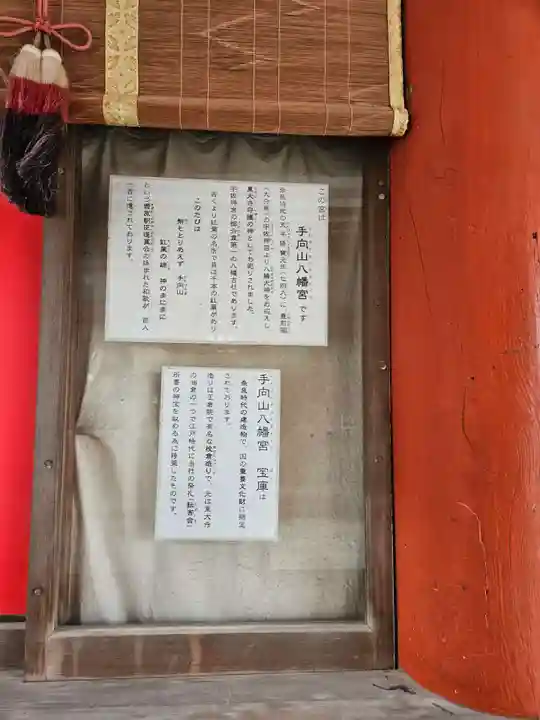 この宮は
手向山八幡宮です
奈良時代の天平勝宝元年(七四九)に豊前国
(大分県)の宇佐神宮より八幡大神をお迎えし
東大寺守護の神としてお祀りされました。
宇佐神宮の御分霊第一の八幡古社であります。
古くより紅葉の名所で昔は千本の紅葉があり
このたびは
幣もとりあえず 手向山
紅葉の錦 神のまにまに
という菅原朝臣道真公の詠まれた和歌が 百人
一首に遺されております。
手向山八幡宮 宝庫は
奈良時代の建造物で、国の重要文化財に指定
されております。
造りは正倉院で有名な校倉造りで、元は東大寺
の油倉の一つで江戸時代に当社の祭礼「転害会」
所要の神宝を収める為に移築したものです。